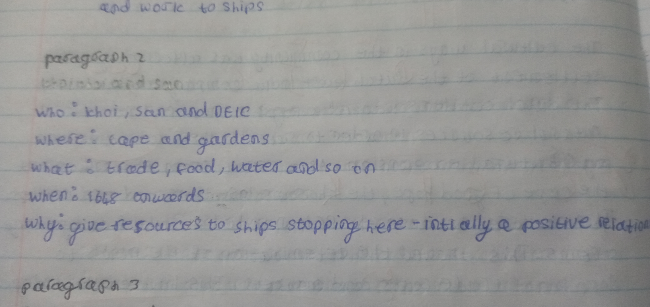 and work to ships
paragraph 2
who: khoi, san and DEIC
where: cape and gardens
what: trade, food, water and so on
when: onwards
why: give resources to ships stopping here - intially a positive relation
paragraph 3